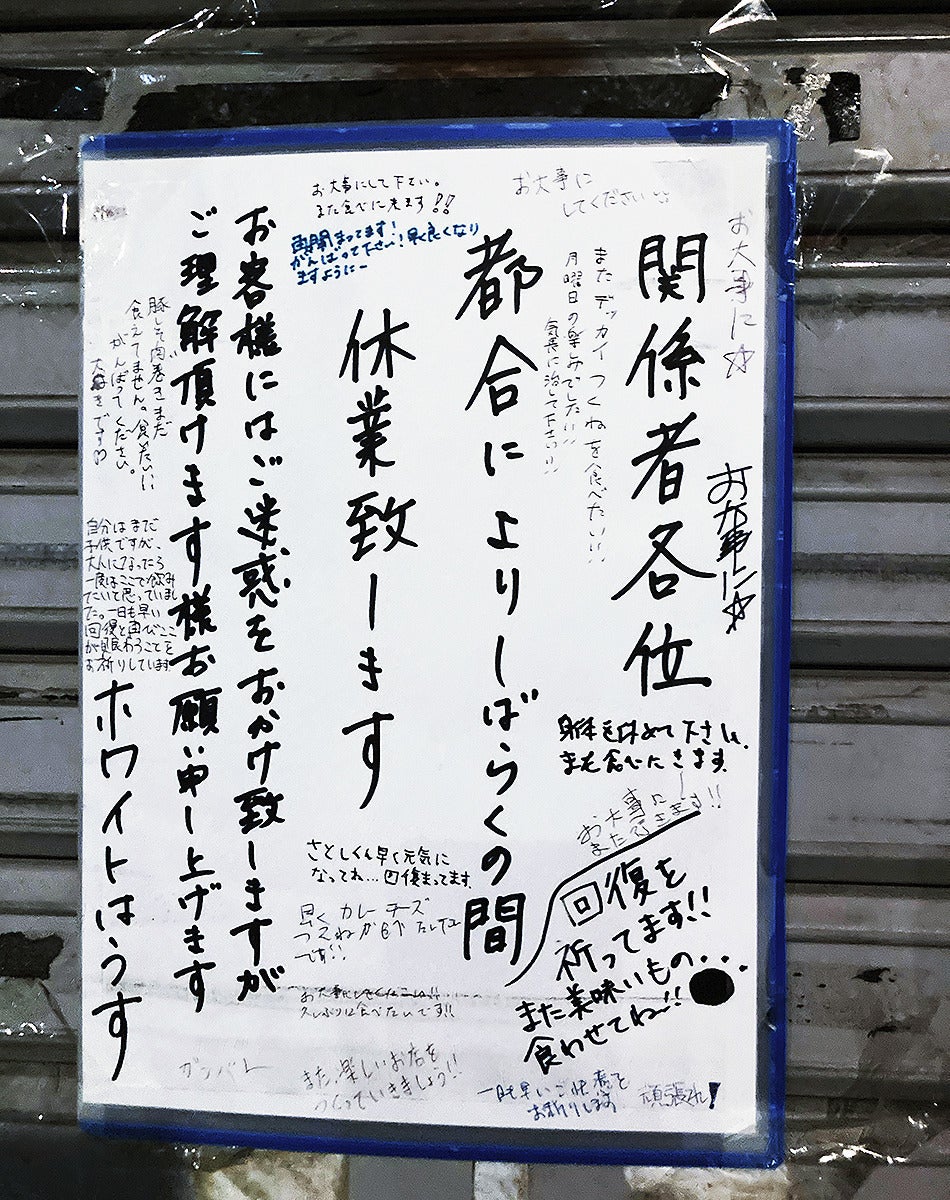 関係者各位
都合によりしばらくの間
休業致します
お客様にはご迷惑をおかけ致しますが
ご理解頂けます様お願い申し上げます
ホワイトはうす
お大事に
してください
お大事に☆
お大事に☆
お大事にして下さい。
また食べに来ます!!
再開まってます!
がんばって下さい!早く良くなり
ますようにー
またデッカイつくねを食べたい!!
月曜日の楽しみでした!!
気長に治して下さい!!
豚しそ肉巻きまだ
食えてません。食べたい!!
がんばってください。
大好きです!!
自分はまだ
子供ですが、
大人になったら
一度はここで飲み
たいと思っていまし
た。一日も早い
回復と再びここ
が賑わうことを
お祈りしています
身体を休めて下さい。
また食べにきます。
お大事に
またきます!!
回復を
祈ってます!!
また美味いもの...
食わせてね〜!!
さとしくん早く元気に
なってね...回復まってます。
早くカレーチーズ
つくねが食べたい
です!!
お大事にしてください!!
久しぶりに食べたいです!!
ガンバレ
また楽しいお店を
つくっていきましょう!!
一日も早いご快復を
お祈りします
頑張れ!